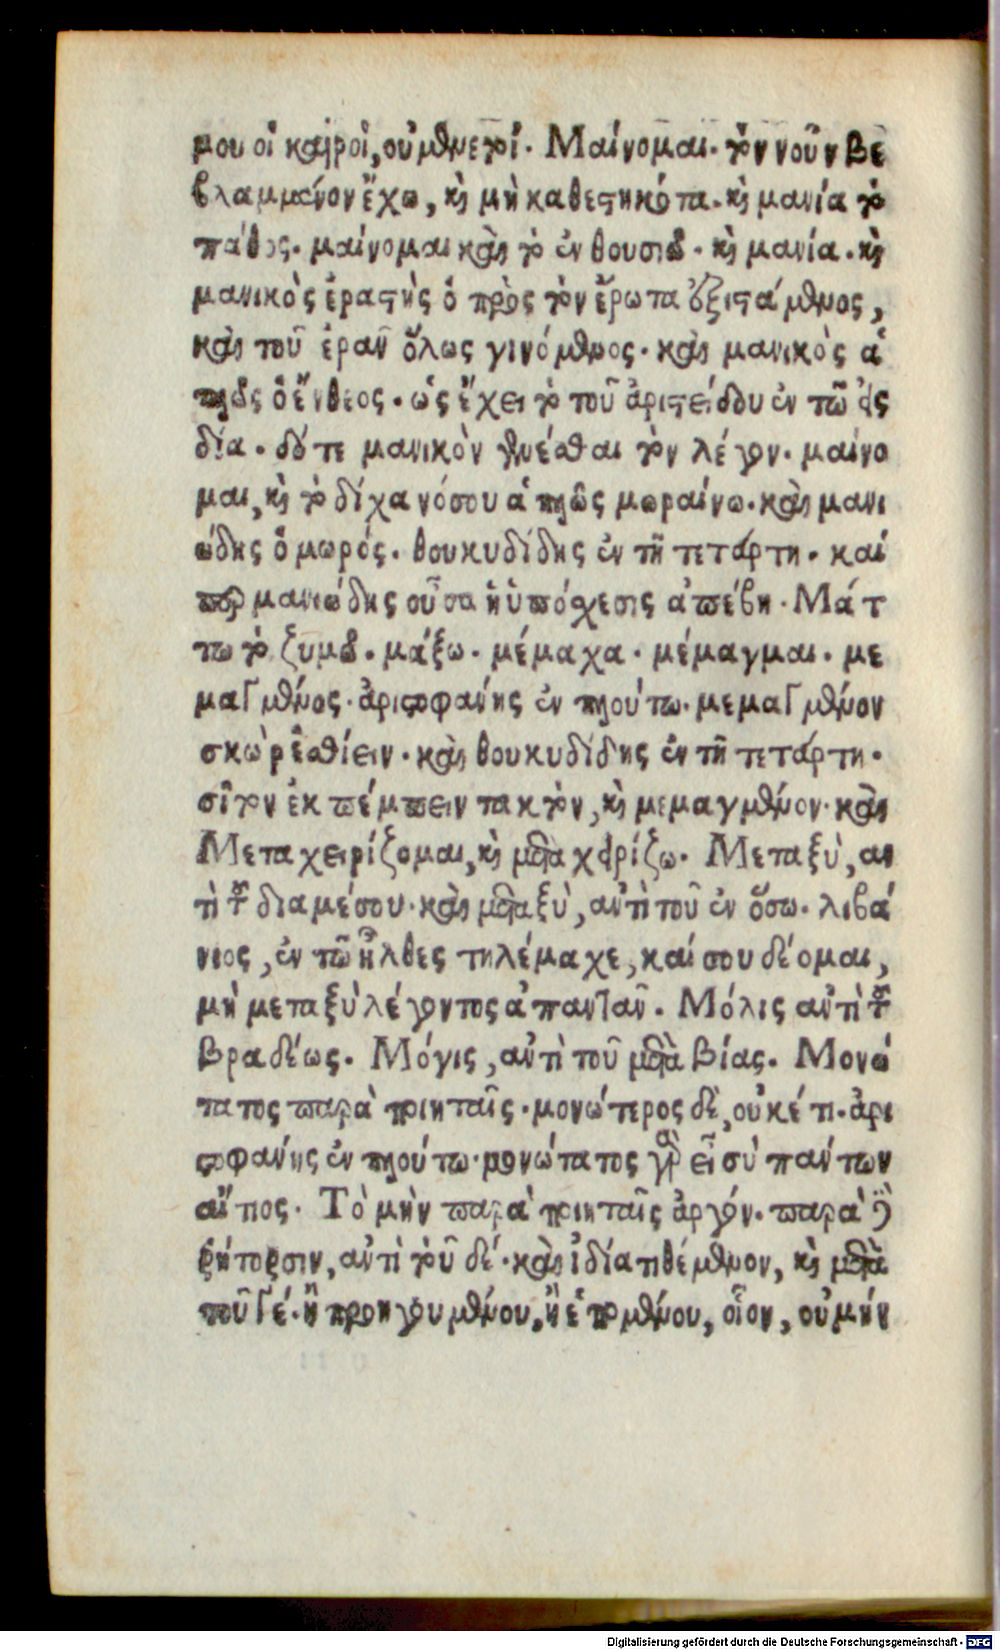 μου οἱ καιροὶ, οὐ μὲν μετοί. Μαίνομαι. τὸν νοῦν βε
βλαμμένον ἔχω, καὶ μὴ καθεστηκότα. καὶ μανία τὸ
πάθος. μαίνομαι καὶ τὸ ἐνθουσιῶ. καὶ μανία. καὶ
μανικὸς ἐραστὴς ὁ πρὸς τὸν ἔρωτα ἐξιστάμενος,
καὶ τοῦ ἐρᾶν ὅλως γινόμενος. καὶ μανικὸς ἁ
πλῶς ὁ ἔνθεος. ὡς ἔχει τὸ τοῦ ἀριστείδου ἐν τῶ
δία. δότε μανικὸν γενέσθαι τὸν λέγον. μαίνο
μαι, καὶ τὸ δίχα νόσου ἁπλῶς μωραίνω. καὶ μανι
ώδης ὁ μωρός. θουκυδίδης ἐν τῆ τετάρτη. καί
περ μανιώδης οὖσα ἡ ὑπόχεσις ἀπέβη. Μάτ
τω τὸ ζυμῶ. μάξω. μέμαχα. μέμαγμαι. με
μαγμένος. ἀριστοφάνης ἐν πλούτω. μεμαγμένον
σκὼρ ἐσθίειν. καὶ θουκυδίδης ἐν τῆ τετάρτη.
σῖτον ἐκπέμπειν τακτὸν, καὶ μεμαγμένον. καὶ
Μεταχειρίζομαι, καὶ μεταχειρίζω. Μεταξὺ, αν
τὶ τοῦ διαμέσου. καὶ μεταξὺ, αντὶ τοῦ ἐν ὅσω. λιβά
νιος, ἐν τῶ ἦλθες τηλέμαχε, καί σου δέομαι,
μὴ μεταξὺ λέγοντος ἀπαντᾶν. Μόλις αντὶ τοῦ
βραδέως. Μόγις, αντὶ τοῦ μετὰ βίας. Μονώ
τατος παρὰ ποιηταῖς. μονώτερος δὲ, οὐκέτι. ἀρι
στοφάνης ἐν πλούτω. μονώτατος γὰρ εἶ σὺ πάντων
αἴτιος. Τὸ μὴν παρὰ ποιηταῖς ἀργόν. παρὰ δὲ
ῥήτορσιν, αντὶ τοῦ δέ. καὶ ἰδία τιθέμενον, καὶ μετὰ
τοῦ γέ. ἢ προηγουμένου, ἢ ἑπομένου, οἷον, οὐ μήν
Digitalisierung gefördert durch die Deutsche Forschungsgemeinschaft - DFG